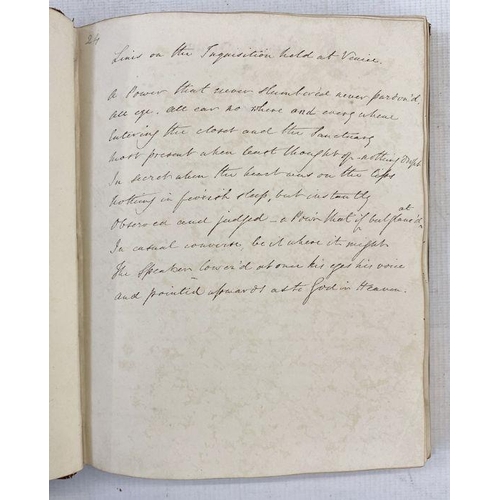 24
Lines on the Inquisition held at Venice.
A Power that never slumbered never pardon'd
All eye, all ear no where and every where
Entering the closet and the Sanctuary
most present when least thought of – nothing dropt
In secret when the heart was on the lips
Nothing in feverish sleep, but instantly
Observed and judged – a Power that if but glanc'd at
In casual converse, be it where it might
The Speaker lower'd at once his eyes his voice
and pointed upwards as to God in Heaven.